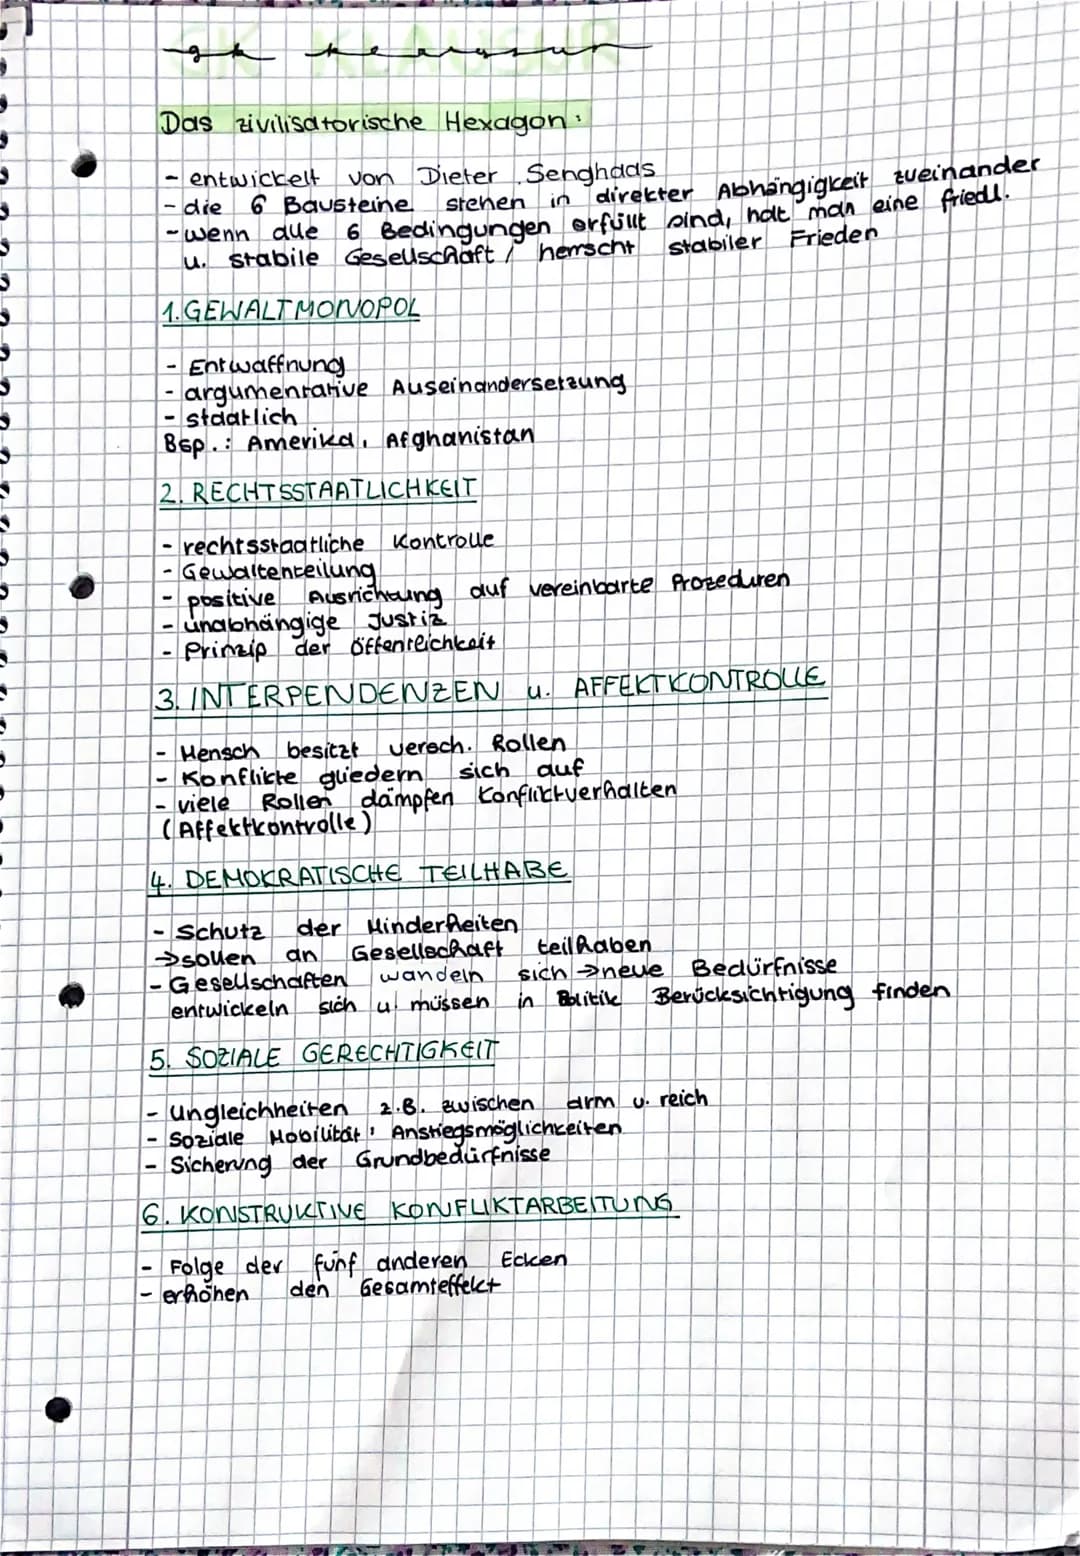 GK KLAUSUR
Das zivilisatorische Hexagon:
- entwickelt von Dieter Senghaas
- die 6 Bausteine stehen in direkter Abhängigkeit zueinander
- wenn alle 6 Bedingungen erfüllt sind, hat man eine friedl.
u. stabile Gesellschaft / herrscht stabiler Frieden
1. GEWALTMONOPOL
- Entwaffnung
- argumentative Auseinandersetzung
- staatlich
Bsp.: Amerika, Afghanistan
2. RECHTSSTAATLICHKEIT
- rechtsstaatliche Kontrolle
- Gewaltenteilung
- positive Ausrichtung auf vereinbarte Prozeduren
- unabhängige Justiz
- Prinzip der Öffenteichkeit
3. INTERPENDENZEN u. AFFEKTKONTROLLE
- Mensch besitzt versch. Rollen
- Konflikte gliedern sich auf
- viele Rollen dämpfen Konfliktverhalten
(Affektkontrolle)
4. DEMOKRATISCHE TEILHABE
- Schutz der Minderheiten
→ sollen an Gesellschaft teilhaben
- Gesellschaften wandeln sich → neue Bedürfnisse
entwickeln sich u. müssen in Politik Berücksichtigung finden
5. SOZIALE GERECHTIGKEIT
- Ungleichheiten z.B. zwischen arm u. reich
- Soziale Mobilität, Anstiegsmöglichkeiten
- Sicherung der Grundbedürfnisse
6. KONSTRUKTIVE KONFLIKTARBEITUNG
- Folge der fünf anderen Ecken
- erhöhen den Gesamteffekt